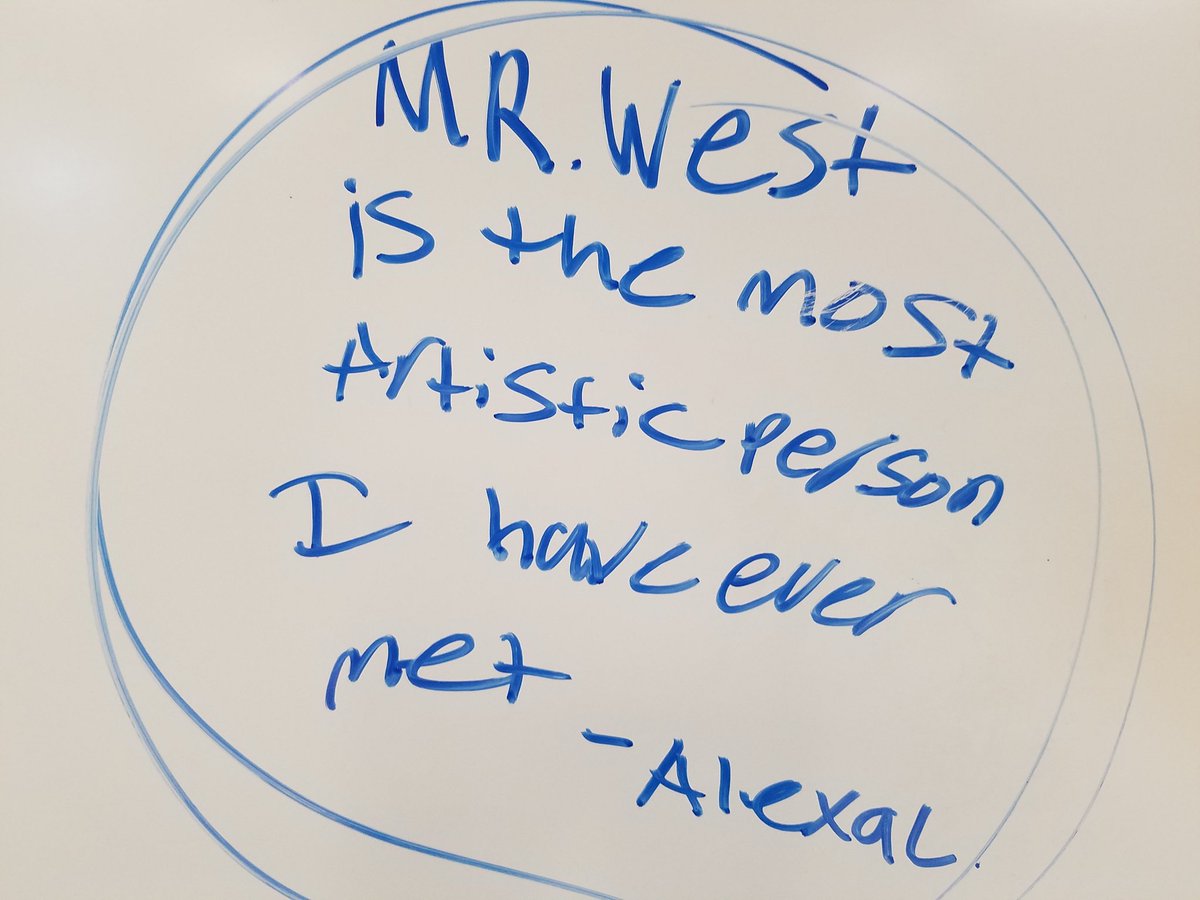 MR. West
is the most
Artistic person
I have ever
met
- Alexa L.